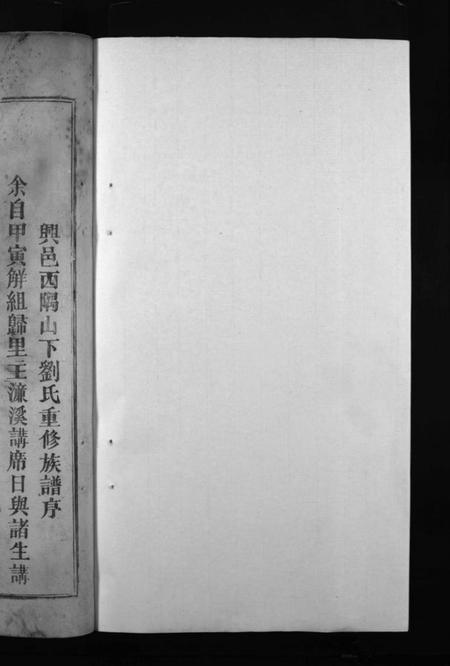 興邑西隅山下劉氏重修族譜序
余自甲寅解組歸里主濂溪講席日與諸生講